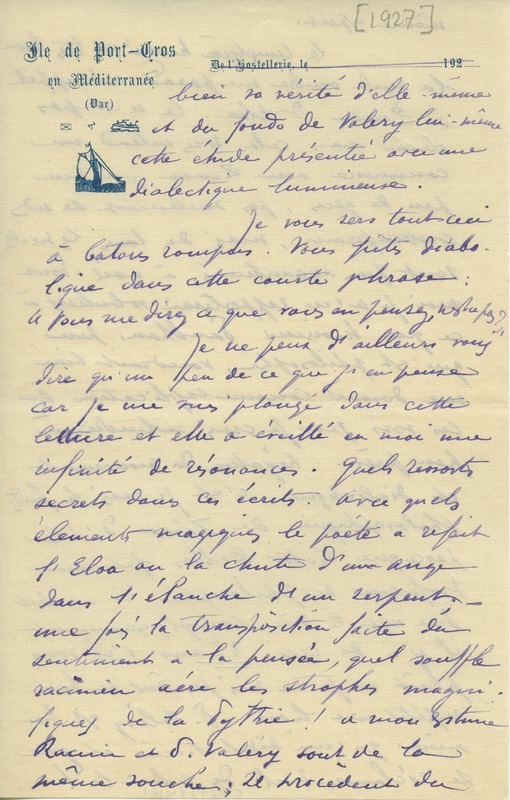 [1927]
Ile de Port-Cros
en Méditerranée
(Var)
De l'Hostellerie, le 192
bien sa vérité d'elle-même
et du fonds de Valery lui-même
cette étude présentée avec une
dialectique lumineuse.
Je vous sers tout ceci
à bâtons rompus. Vous fûtes diabo-
lique dans cette courte phrase :
" Vous me direz ce que vous en pensez, n'est-ce pas ? "
Je ne peux d'ailleurs vous
dire qu'un peu de ce que j'en pense
car je me suis plongé dans cette
lecture et elle a éveillé en moi une
infinité de résonances. Quels ressorts
secrets dans ces écrits. Avec quels
éléments magiques le poète a refait
l'Eloa ou la chute d'un ange
dans l'ébauche d'un serpent. _
une fois la transposition faite du
sentiment à la pensée, quel souffle
racinien aère les strophes magni-
fiques de la Pythie ! a mon estime
Racine et P. Valery sont de la
même souche ; ils procèdent du